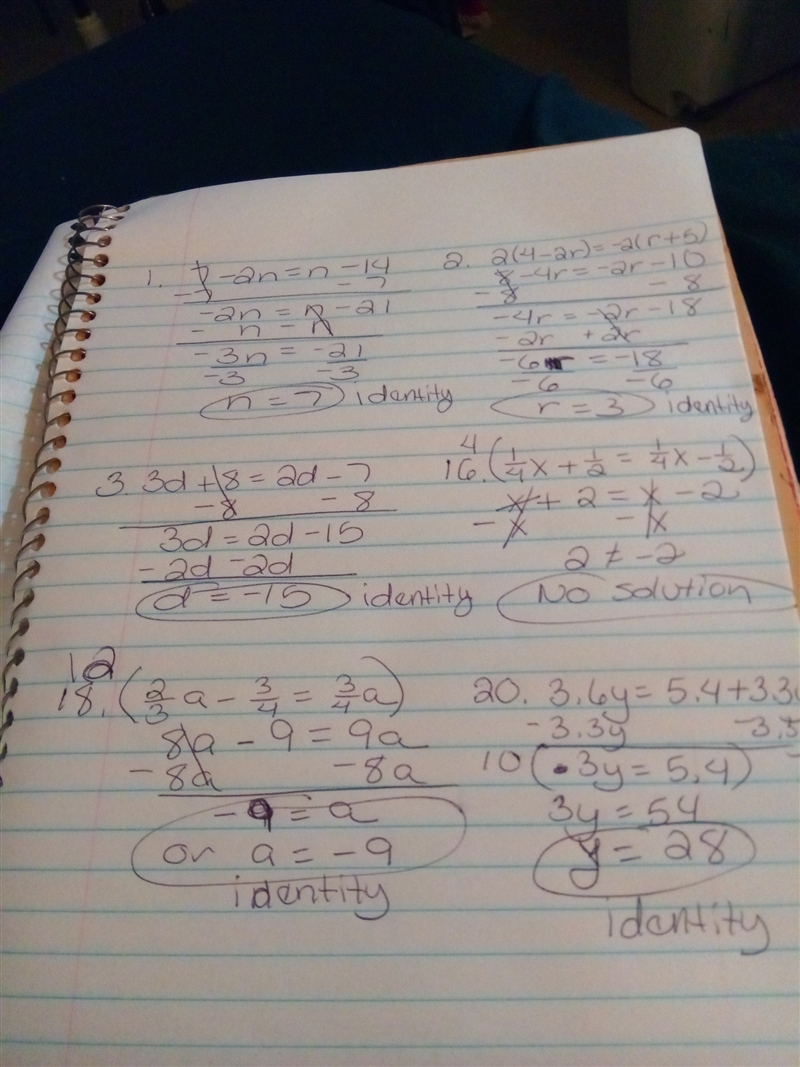 1. 7 - 2n = n - 14
- 7 - 7
-2n = n - 21
- n - n
-3n = -21
-3 -3
n = 7 identity
2. 2(4-2r) = -2(r+5)
8 - 4r = -2r - 10
- 8 - 8
-4r = -2r - 18
- 2r + 2r
-6r = -18
-6 -6
r = 3 identity
3. 3d + 8 = 2d - 7
- 8 - 8
3d = 2d - 15
- 2d -2d
d = -15 identity
4
16. (1/4x + 1/2 = 1/4x - 1/2)
x + 2 = x - 2
- x - x
2 ≠ -2
No solution
12
18. (2/3a - 3/4 = 3/4a)
8a - 9 = 9a
- 8a - 8a
-9 = a
or a = -9
identity
20. 3.6y = 5.4 + 3.3
-3.3y -3.3
10 (.3y = 5.4)
3y = 54
y = 28
identity